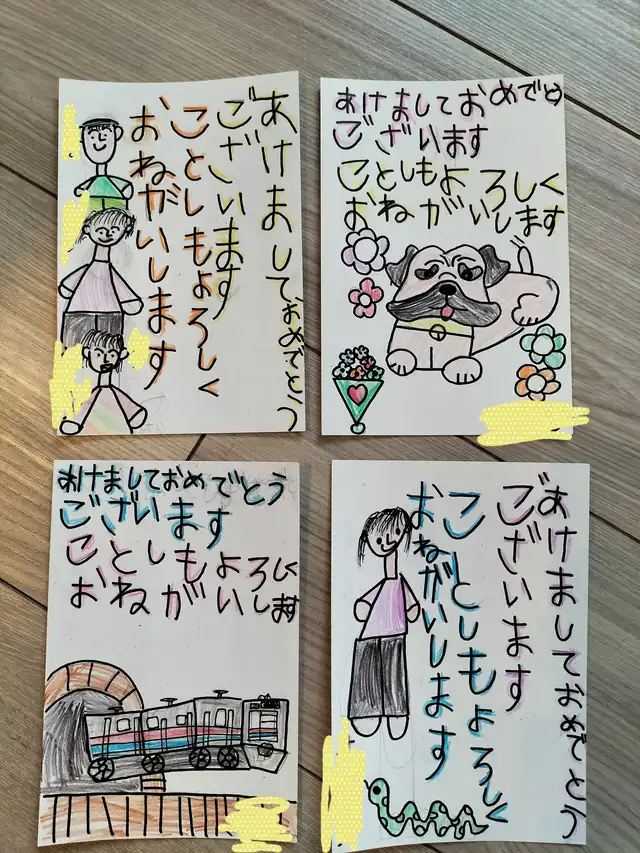 あけましておめでとう
ございます
ことしもよろしく
おねがいします
あけましておめでとう
ございます
ことしもよろしく
おねがいします
あけましておめでとう
ございます
ことしもよろしく
おねがいします
あけましておめでとう
ございます
ことしもよろしく
おねがいします